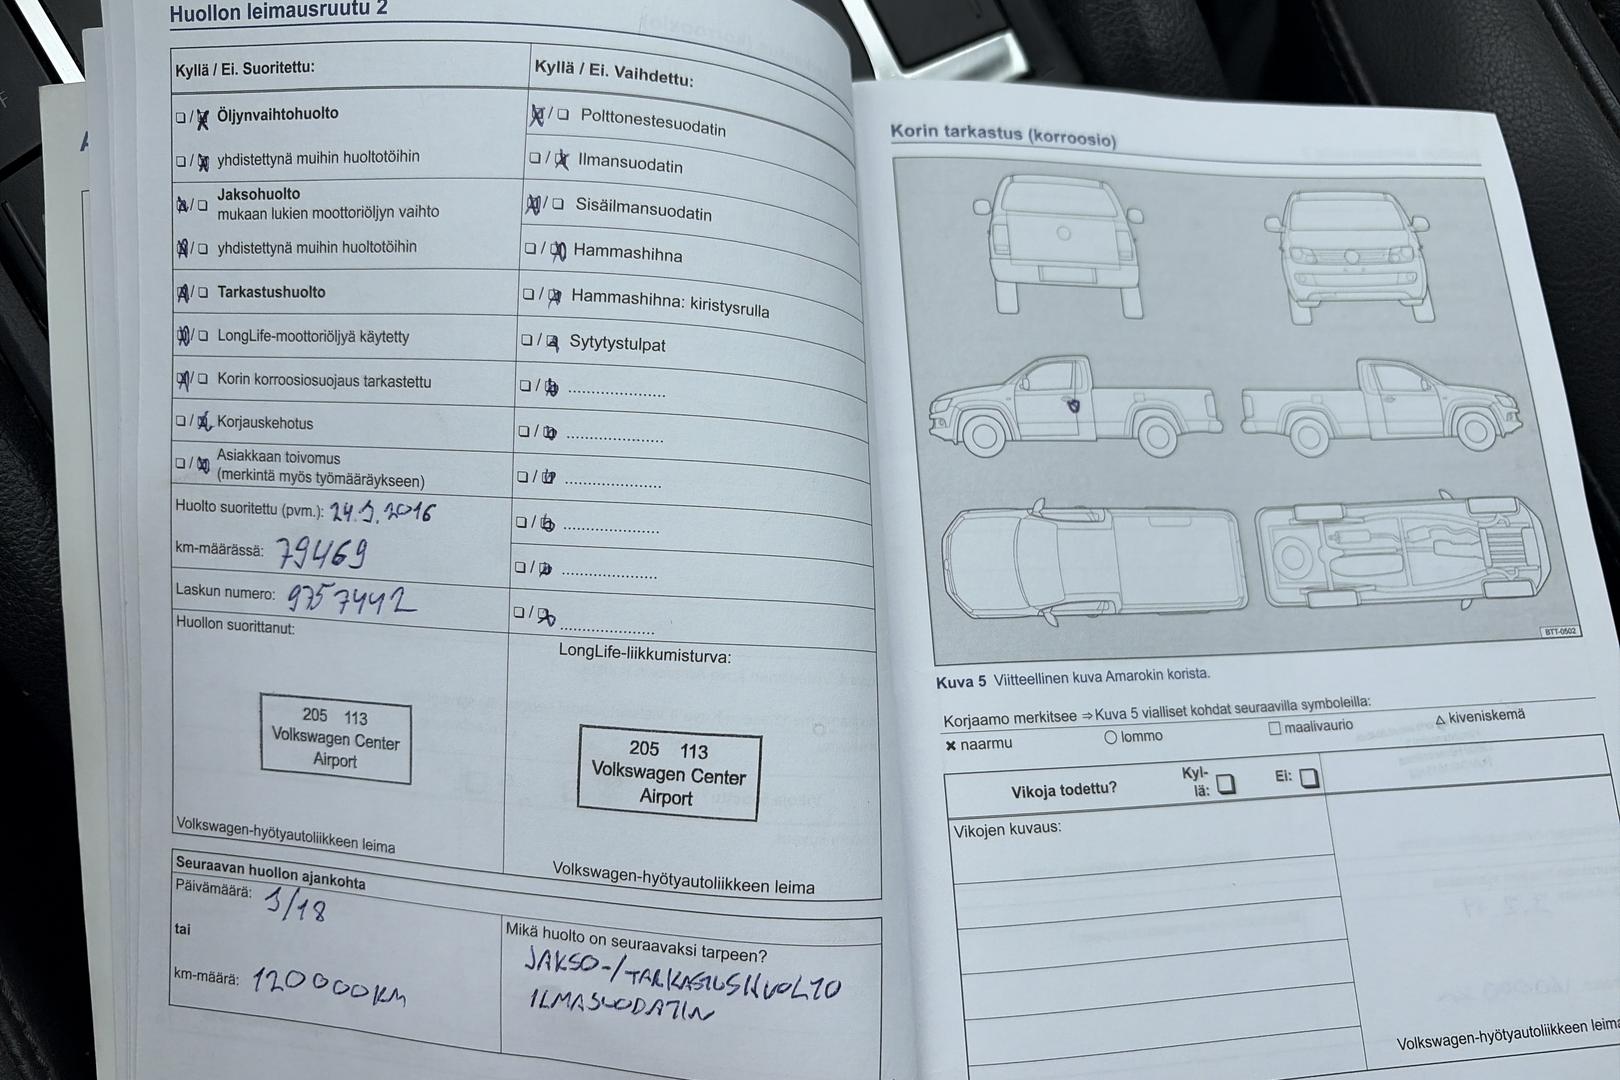 Huollon leimausruutu 2
Kyllä / Ei. Suoritettu:
Öljynvaihtohuolto
yhdistettynä muihin huoltotöihin
Jaksohuolto
mukaan lukien moottoriöljyn vaihto
yhdistettynä muihin huoltotöihin
Tarkastushuolto
LongLife-moottoriöljyä käytetty
Korin korroosiosuojaus tarkastettu
Korjauskehotus
Asiakkaan toivomus
(merkintä myös työmääräykseen)
Huolto suoritettu (pvm.): 24.5.2016
km-määrässä: 79469
Laskun numero: 9757442
Huollon suorittanut:
205 113
Volkswagen Center
Airport
Volkswagen-hyötyautoliikkeen leima
Kyllä / Ei. Vaihdettu:
Polttonestesuodatin
Ilmansuodatin
Sisäilmansuodatin
Hammashihna
Hammashihna: kiristysrulla
Sytytystulpat
LongLife-liikkumisturva:
205 113
Volkswagen Center
Airport
Volkswagen-hyötyautoliikkeen leima
Seuraavan huollon ajankohta
Päivämäärä: 5/18
tai
km-määrä: 120000KM
Mikä huolto on seuraavaksi tarpeen?
JAKSO-/TARKASTUSHUOLTO
ILMASUODATIN
Korin tarkastus (korroosio)
BTT-0502
Kuva 5 Viitteellinen kuva Amarokin korista.
Korjaamo merkitsee ⇒ Kuva 5 vialliset kohdat seuraavilla symboleilla:
✖ naarmu ○ lommo □ maalivaurio △ kiveniskemä
Vikoja todettu? Kyl-
lä: Ei:
Vikojen kuvaus:
Volkswagen-hyötyautoliikkeen leima